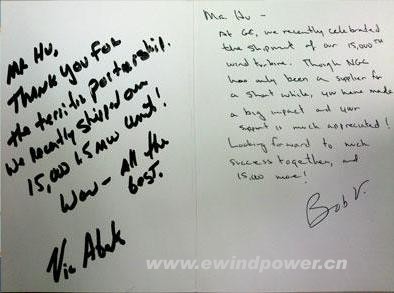 Mr Hu,
Thank you for
the terrific partnership.
We recently shipped our
15,000 1.5 MW unit!
Wow - All the
best.
Vic Abate
Mr. Hu -
At GE, we recently celebrated
the shipment of our 15,000TH
wind turbine. Though NGC
has only been a supplier for
a short while, you have made
a big impact and your
support is much appreciated!
Looking forward to much
success together, and
15,000 more!
Bob V.
www.ewindpower.cn